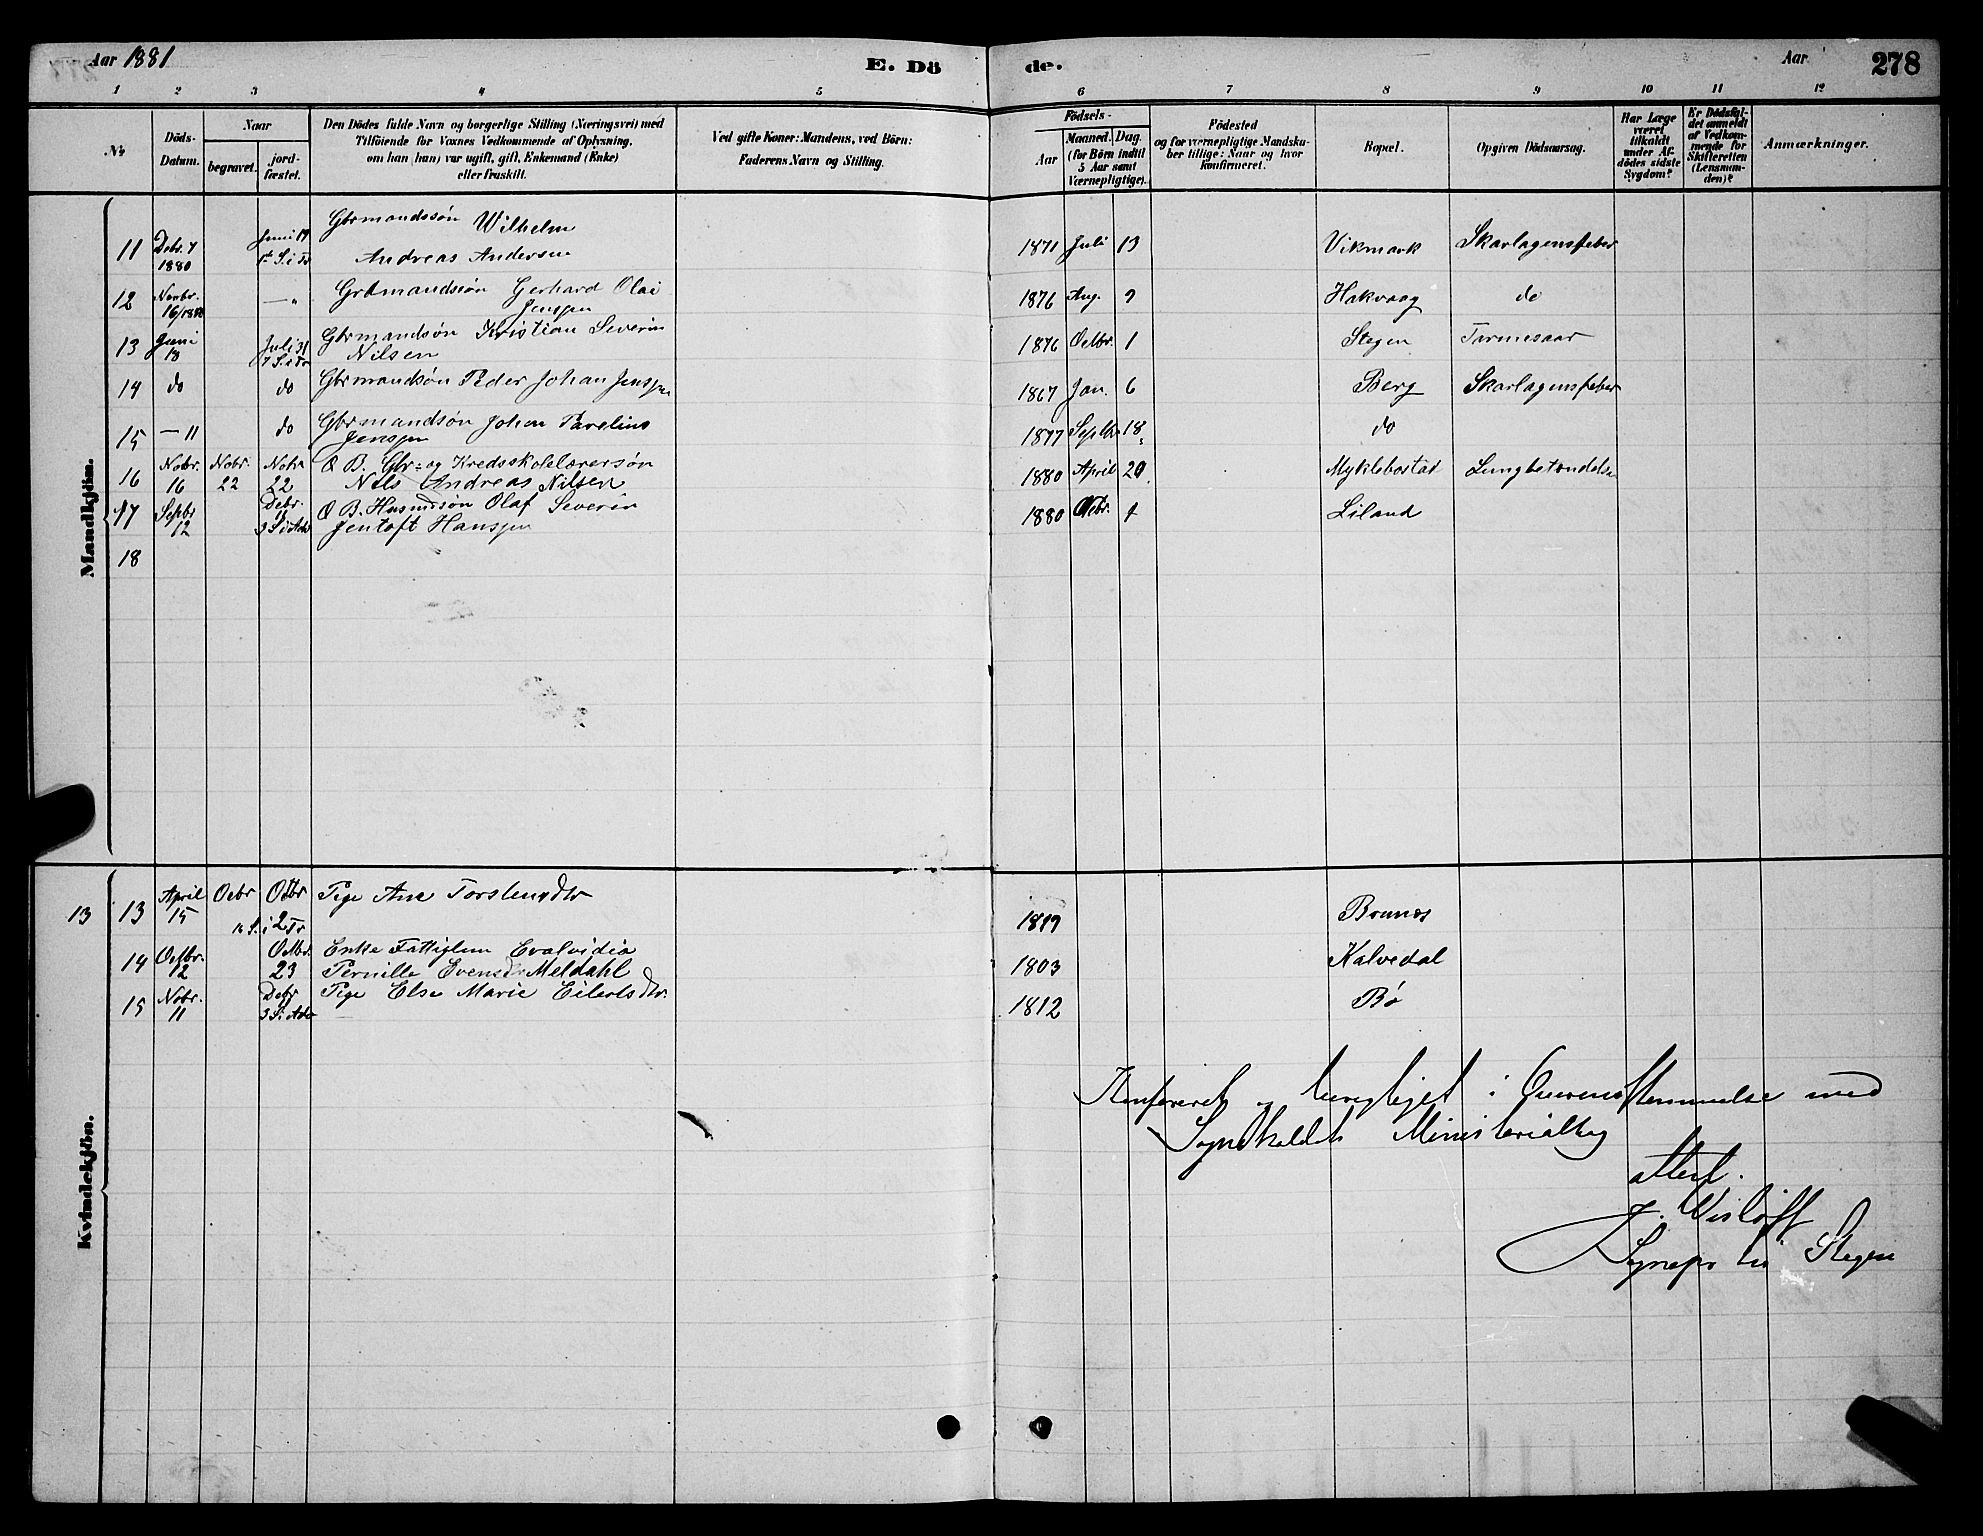 Aar 1881 E. Dö de. Aar 278
1 2 3 4 5 6 7 8 9 10 11 12
No
Döds-Datum.
Naar
begravet.
jord-fæstet.
Den Dödes fulde Navn og borgerlige Stilling (Næringsvei) med
Tilföiende for Voxnes Vedkommende af Oplysning,
om han (hun) var ugift, gift, Enkemand (Enke)
eller fraskilt.
Ved gifte Koner: Mandens, ved Börn:
Faderens Navn og Stilling.
Födsels-
Aar
Maaned. Dag.
(for Börn indtil
5 Aar samt
Værnepligtige).
Födested
og for værnepligtige Mandska-
ber tillige: Naar og hvor
konfirmeret.
Bopæl.
Opgiven Dödsaarsag.
Har Læge
været
tilkaldt
under Af-
dödes sidste
Sygdom?
Er Dödsfal-
det anmeldt
af Vedkom-
mende for
Skifteretten
(Lensman-
den)?
Anmærkninger.
Mandkjön.
Gbrmandssön Wilhelm
11 Debr. 7 1880 Juni 19 Andreas Andersen 1871 Juli 13 Vikmark Skarlagensfeber
12 Novbr. 16/1880 — " Gbrmandssön Gerhard Olai Jenssen 1876 Aug. 9 Hakvaag do
13 Juni 18 Juli 31 7 S. i Tr Gbrmandsøn Kristian Severin
Nilsen 1876 Octbr. 1 Stegen Tarmesaar
14 do do Gbrmandsøn Peder Johan Jenssen 1867 Jan. 6 Berg Skarlagensfeber
15 — 11 do Gbrmandsøn Johan Parelius
Jenssen 1877 Septbr 18 do
16 Nobr. 16 Nobr. 22 Nobr 22 Ø B. Gbr- og Kredsskolelærersøn
Nils Andreas Nilsen 1880 April 20 Myklebostad Lungbetændelse
17 Septbr 12 Debr. 11 3 S i Adv Ø B. Husmdsøn Olaf Severin
Jentoft Hanssen 1880 Octbr. Liland
18
Kvindekjön.
13 13 April 15 Octbr Octbr 2 Pige Ane Torstensdtr 1819 Brunes
14 Octbr. 12 Octbr. 23 Enke Fattiglem Evalvidia
Pernille Evensd Meldahl 1803 Kalvedal
15 Nobr. 11 Debr 11 3 S i Adv Pige Else Marie Eilertsdtr. 1812 Bø
Konfereret og befunden i Overensstemmelse med
Sognekaldets Ministerialbog
attest.
J. Wisløff
Sognepr til Stegen